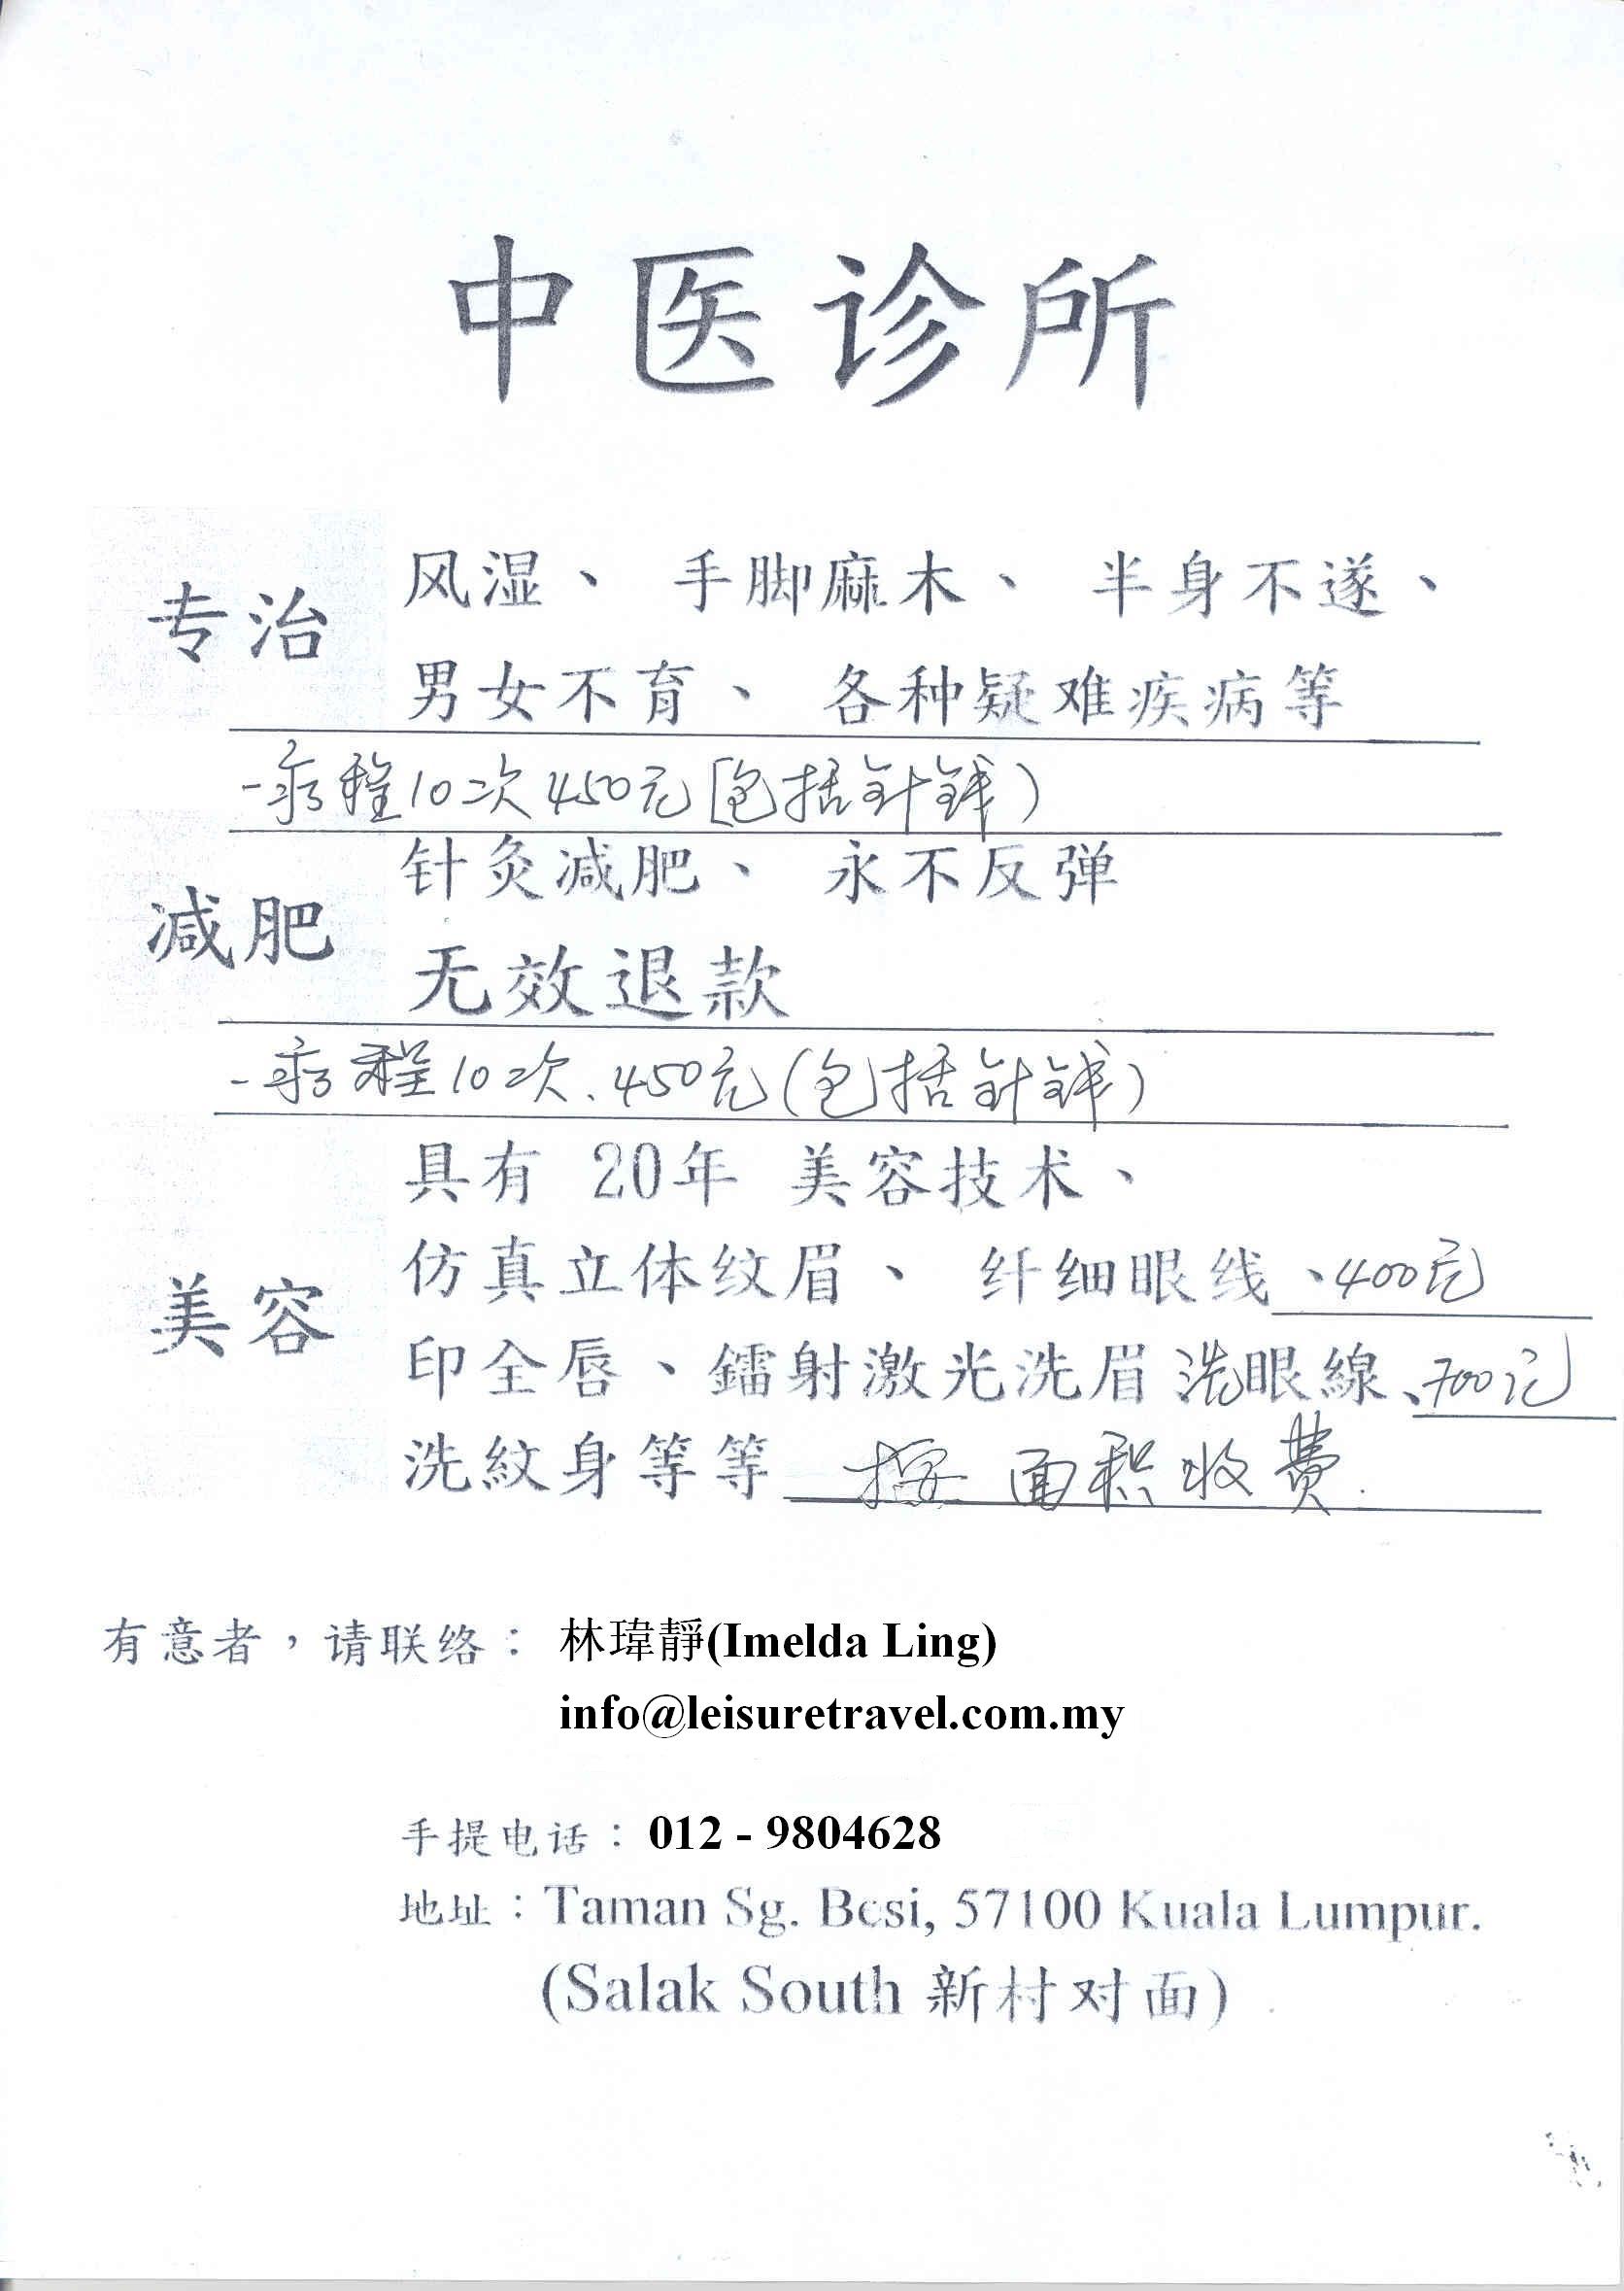 中医诊所
专治 风湿、 手脚麻木、 半身不遂、
男女不育、 各种疑难疾病等
一疗程10次450元[包括针钱)
减肥 针灸减肥、 永不反弹
无效退款
一疗程10次、450元(包括针钱)
美容 具有 20年 美容技术、
仿真立体纹眉、 纤细眼线、400元
印全唇、鐳射激光洗眉 洗眼線、700元
洗紋身等等 按面积收费.
有意者，请联络： 林瑋靜(Imelda Ling)
info@leisuretravel.com.my
手提电话：012 - 9804628
地址：Taman Sg. Besi, 57100 Kuala Lumpur.
(Salak South 新村对面)